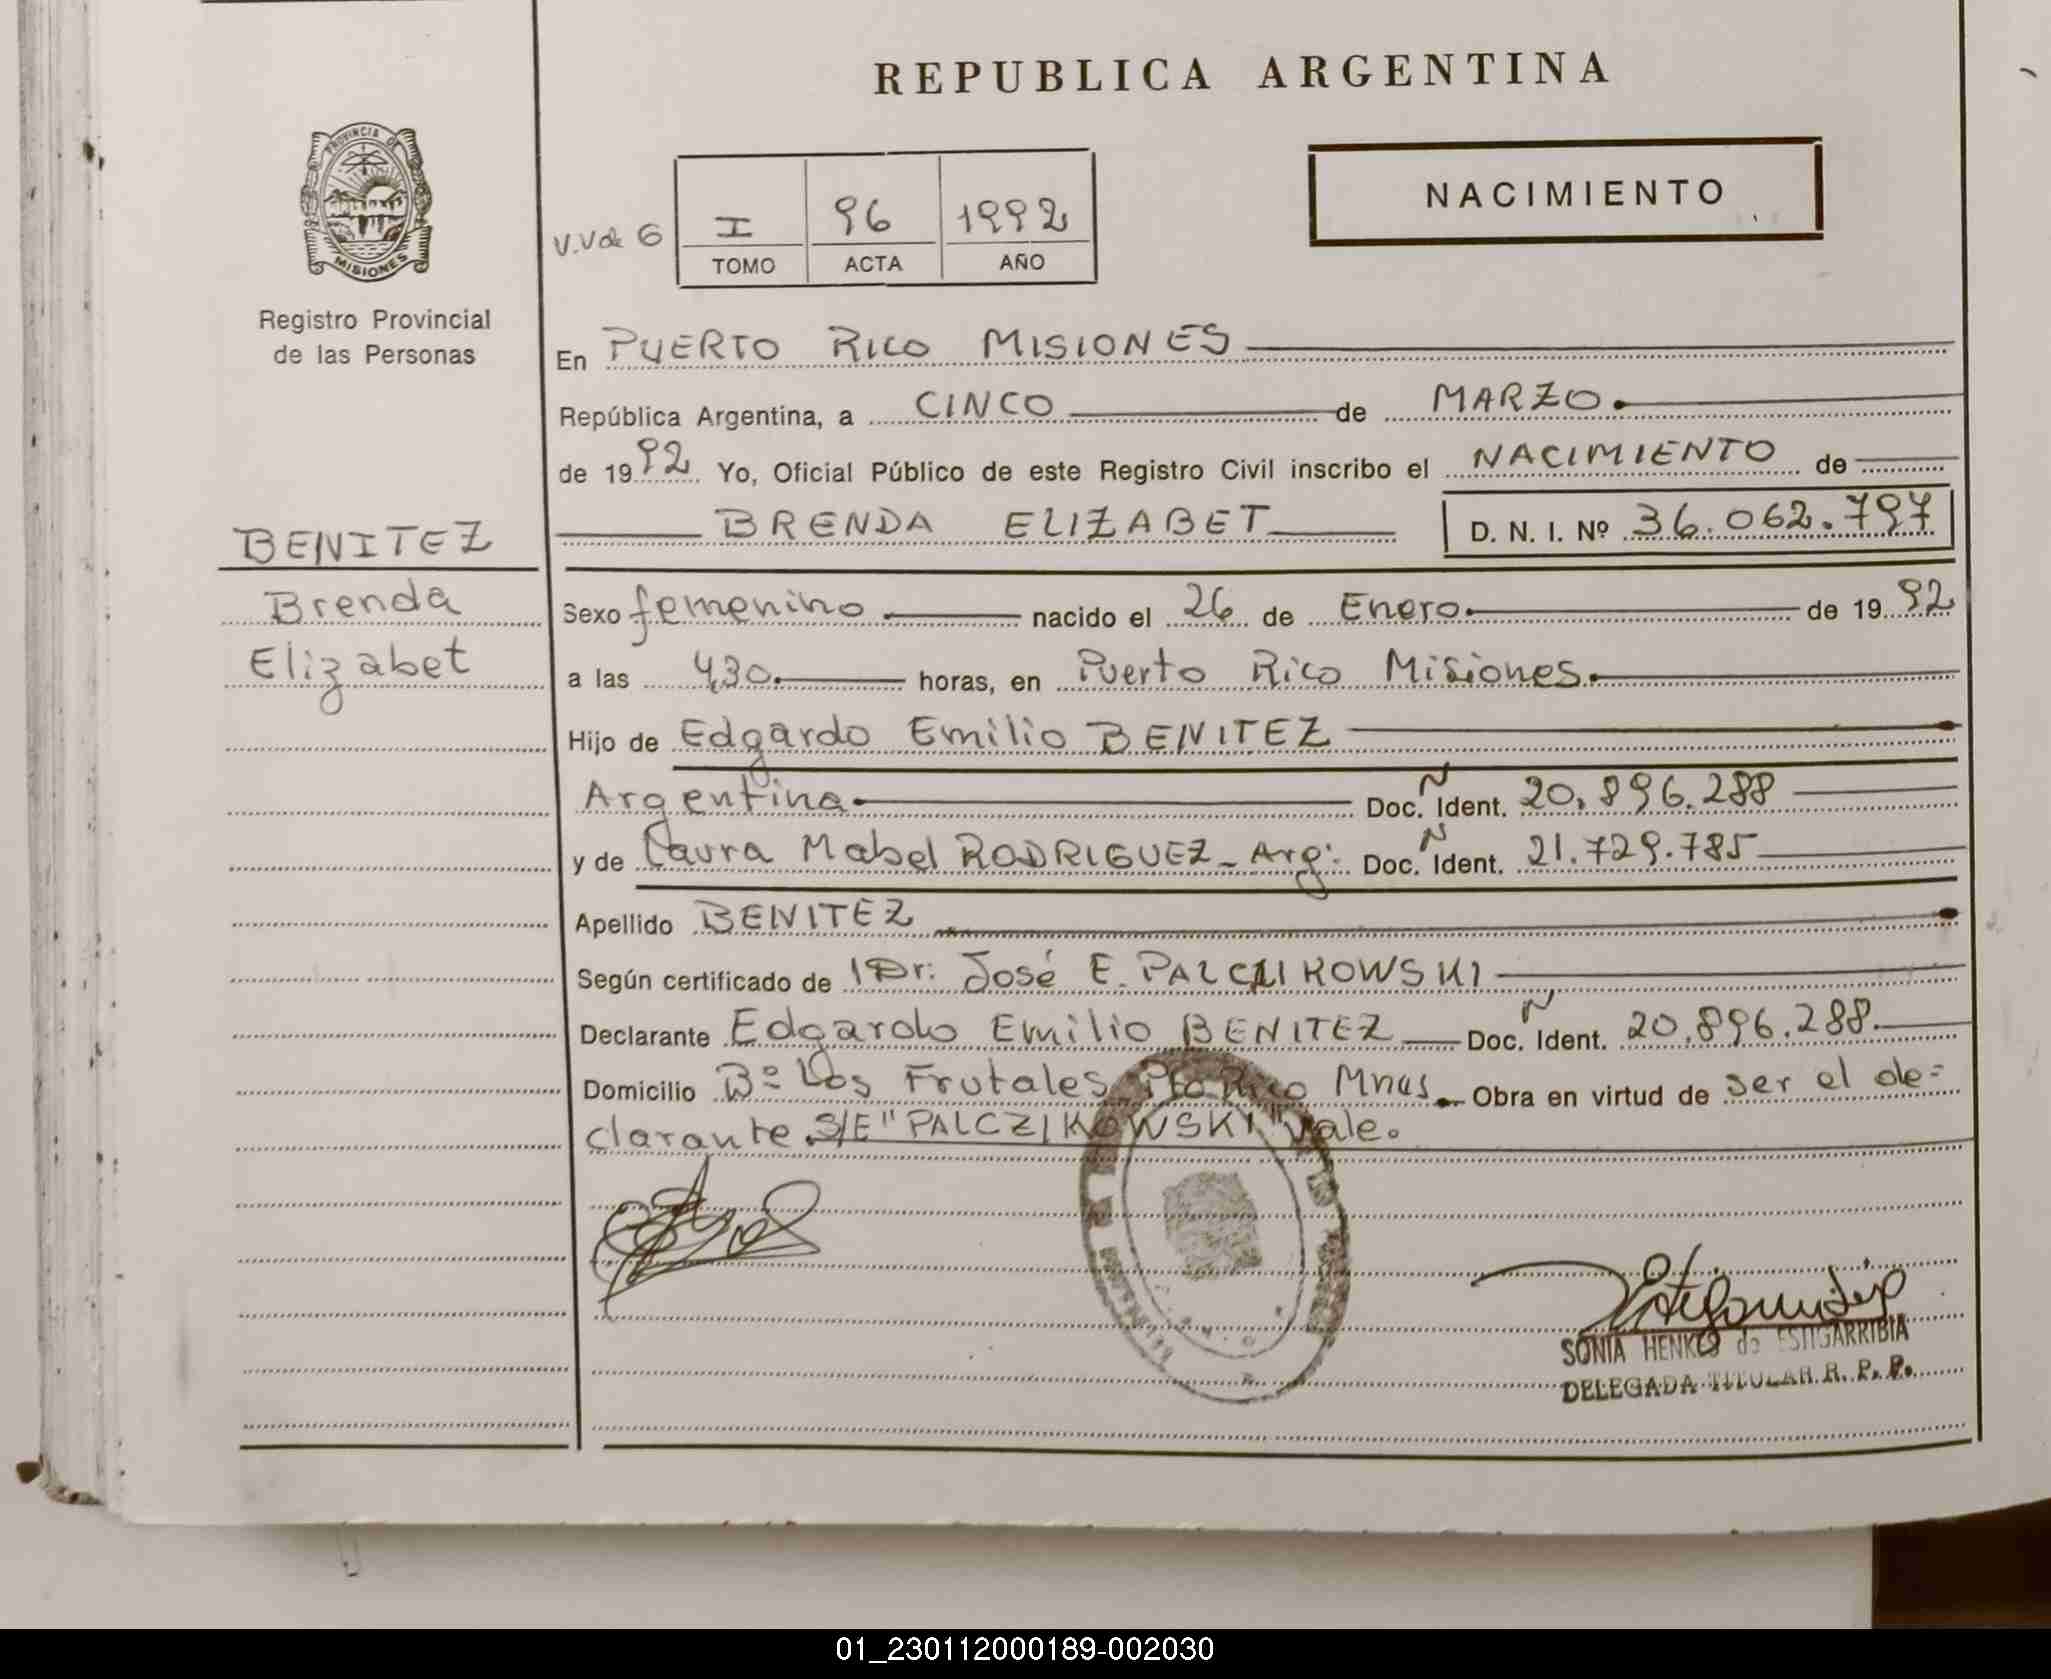 REPUBLICA ARGENTINA
PROVINCIA DE
MISIONES
Registro Provincial
de las Personas
V.V de G
I 96 1992
TOMO ACTA AÑO
NACIMIENTO
En PUERTO RICO MISIONES
República Argentina, a CINCO de MARZO
de 1992 Yo, Oficial Público de este Registro Civil inscribo el NACIMIENTO de
BRENDA ELIZABET D. N. I. Nº 36.062.797
BENITEZ
Brenda
Elizabet
Sexo femenino nacido el 26 de Enero de 1992
a las 4,30 horas, en Puerto Rico Misiones
Hijo de Edgardo Emilio BENITEZ
Argentina Doc. N Ident. 20.896.288
y de Laura Mabel RODRIGUEZ - Arg. Doc. N Ident. 21.729.785
Apellido BENITEZ
Según certificado de Dr: José E. PALCZIKOWSKI
Declarante Edgardo Emilio BENITEZ Doc. N Ident. 20.896.288
Domicilio Bº Los Frutales Pto Rico Mnes. Obra en virtud de ser el de=
clarante. S/E "PALCZIKOWSKI" Vale.
SONIA HENKES de ESTIGARRIBIA
DELEGADA TITULAR R. P. P.
01_230112000189-002030